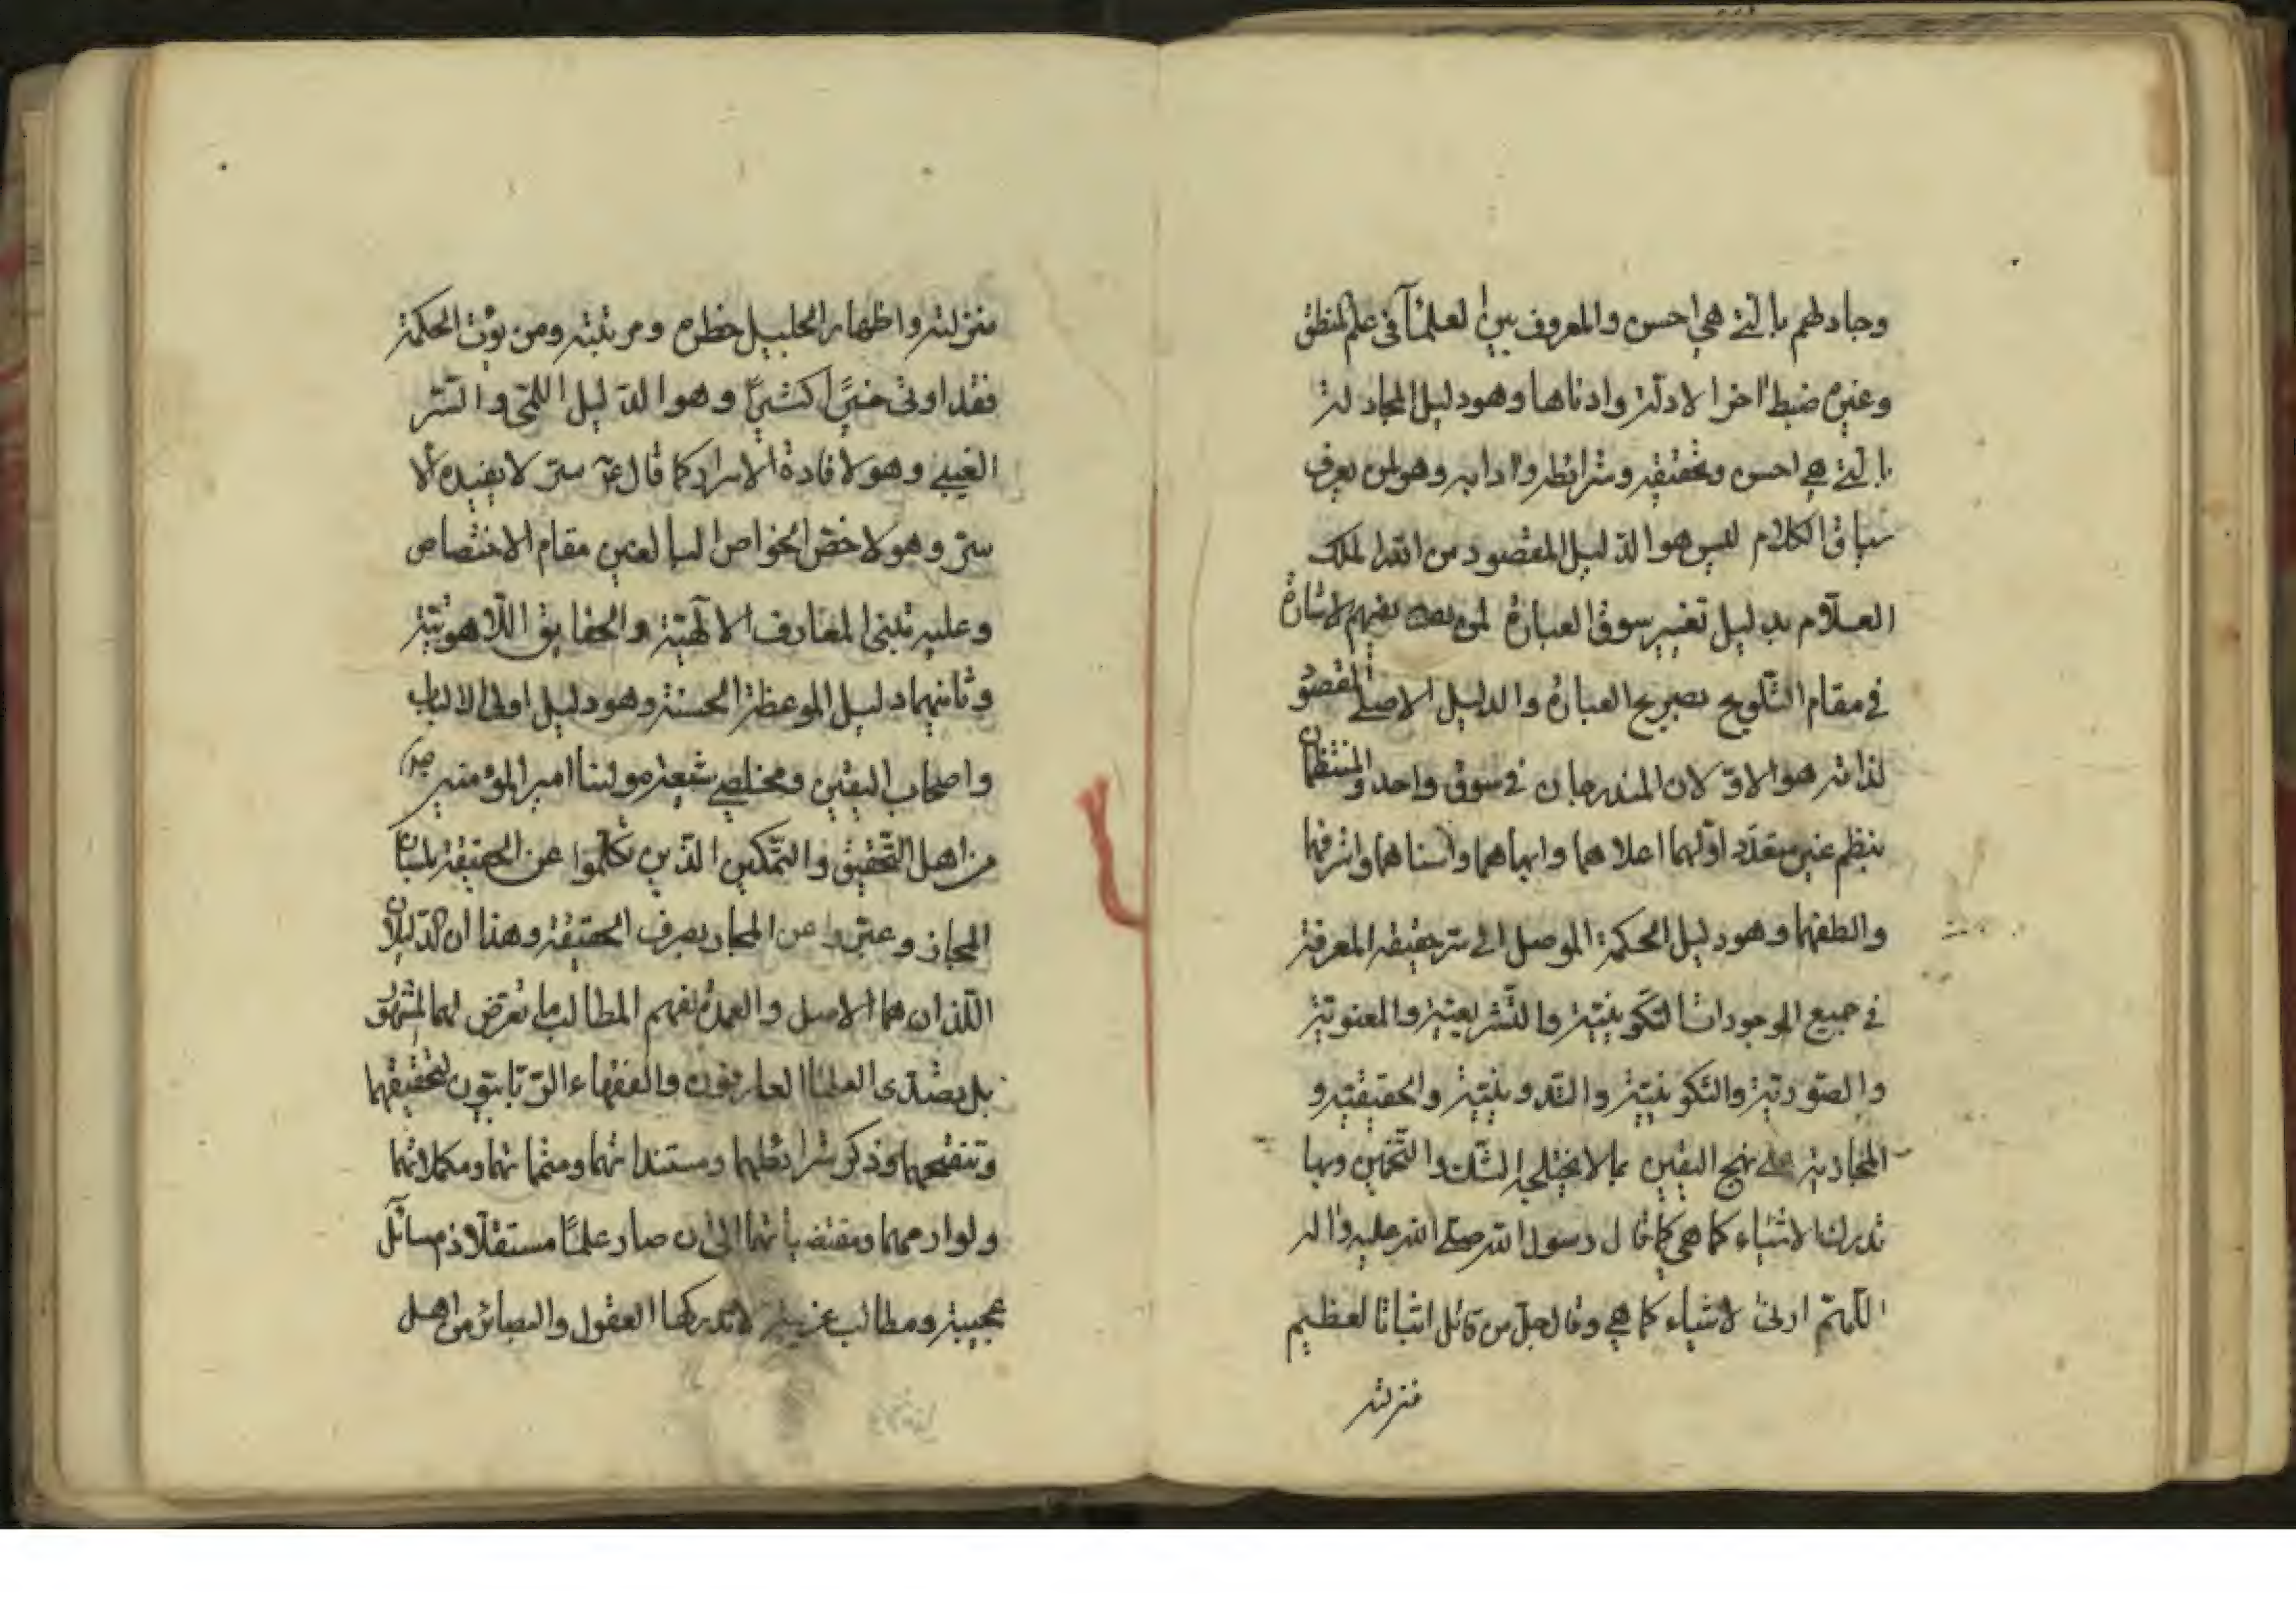 وجادلهم بالتي هي احسن والمعروف بين العلمآء في علم المنطق
وغيره ضبط اخر الادلة وادناها وهو دليل المجادلة
بالتي هي احسن وتحقيقه وشرائطه وادابه وهو لمن يعرف
سياق الكلام ليس هو الدليل المقصود من الله الملك
العلّام بدليل تغيير سوق العبارة لمن يفهم الاشارة
في مقام التلويح بصريح العبارة والدليل الاصلي المقصود
لذاته هو الاوّلان المندرجان في سوق واحد والمنتظمان
بنظم غير متعدّد اولهما اعلاهما وابهاهما واسناهما واشرفهما
والطفهما وهو دليل الحكمة الموصل الى سر حقيقة المعرفة
في جميع الموجودات التكوينيّة والتشريعيّة والمعنويّة
والصّوريّة والتكوينيّة والتدوينيّة والحقيقيّة و
المجازية على نهج اليقين بما لا يختلجه الشّك والتّخمين وبها
تدرك الاشياء كما هي كما قال رسول الله صلى الله عليه واله
اللّهمّ ارنى الاشياء كما هي وقال جلّ من قائل اثباتا لعظيم
منزلته
منزلته واظهارا لجليل خطره ومرتبته ومن يؤت الحكمة
فقد اوتى خيرًا كثيرًا وهو الدّليل اللمّى والسّر
الغيبي وهو لافادة الاسرار كما قال ع سرّ لا يفيده الا
سرّ وهو لاخصّ الخواص البالغين مقام الاختصاص
وعليه تبنى المعارف الالٓهيّة والحقايق اللّاهوتيّة
وثانيهما دليل الموعظة الحسنة وهو دليل اولى الالباب
واصحاب اليقين ومخلصي شيعة مولينا امير المؤمنين
من اهل التّحقيق والتّمكين الّذين تكلّموا عن الحقيقة بلسان
المجاز وعبّروا عن المجاز بصرف الحقيقة وهذان الدّليلان
اللّذان هما الاصل والعمدة لفهم المطالب ما تعرّض لهما المشهور
بل يصتدى العلماء العارفون والفقهاء الرّبّانيّون لتحقيقهما
وتنقيحهما وذكر شرائطهما ومستنداتهما ومتمماتهما ومكملاتهما
ولوازمهما ومقتضياتهما الى ان صار علمًا مستقلّا ذو مسائل
عجيبة ومطالب غريبة لا تدركها العقول والبصائر من اهل